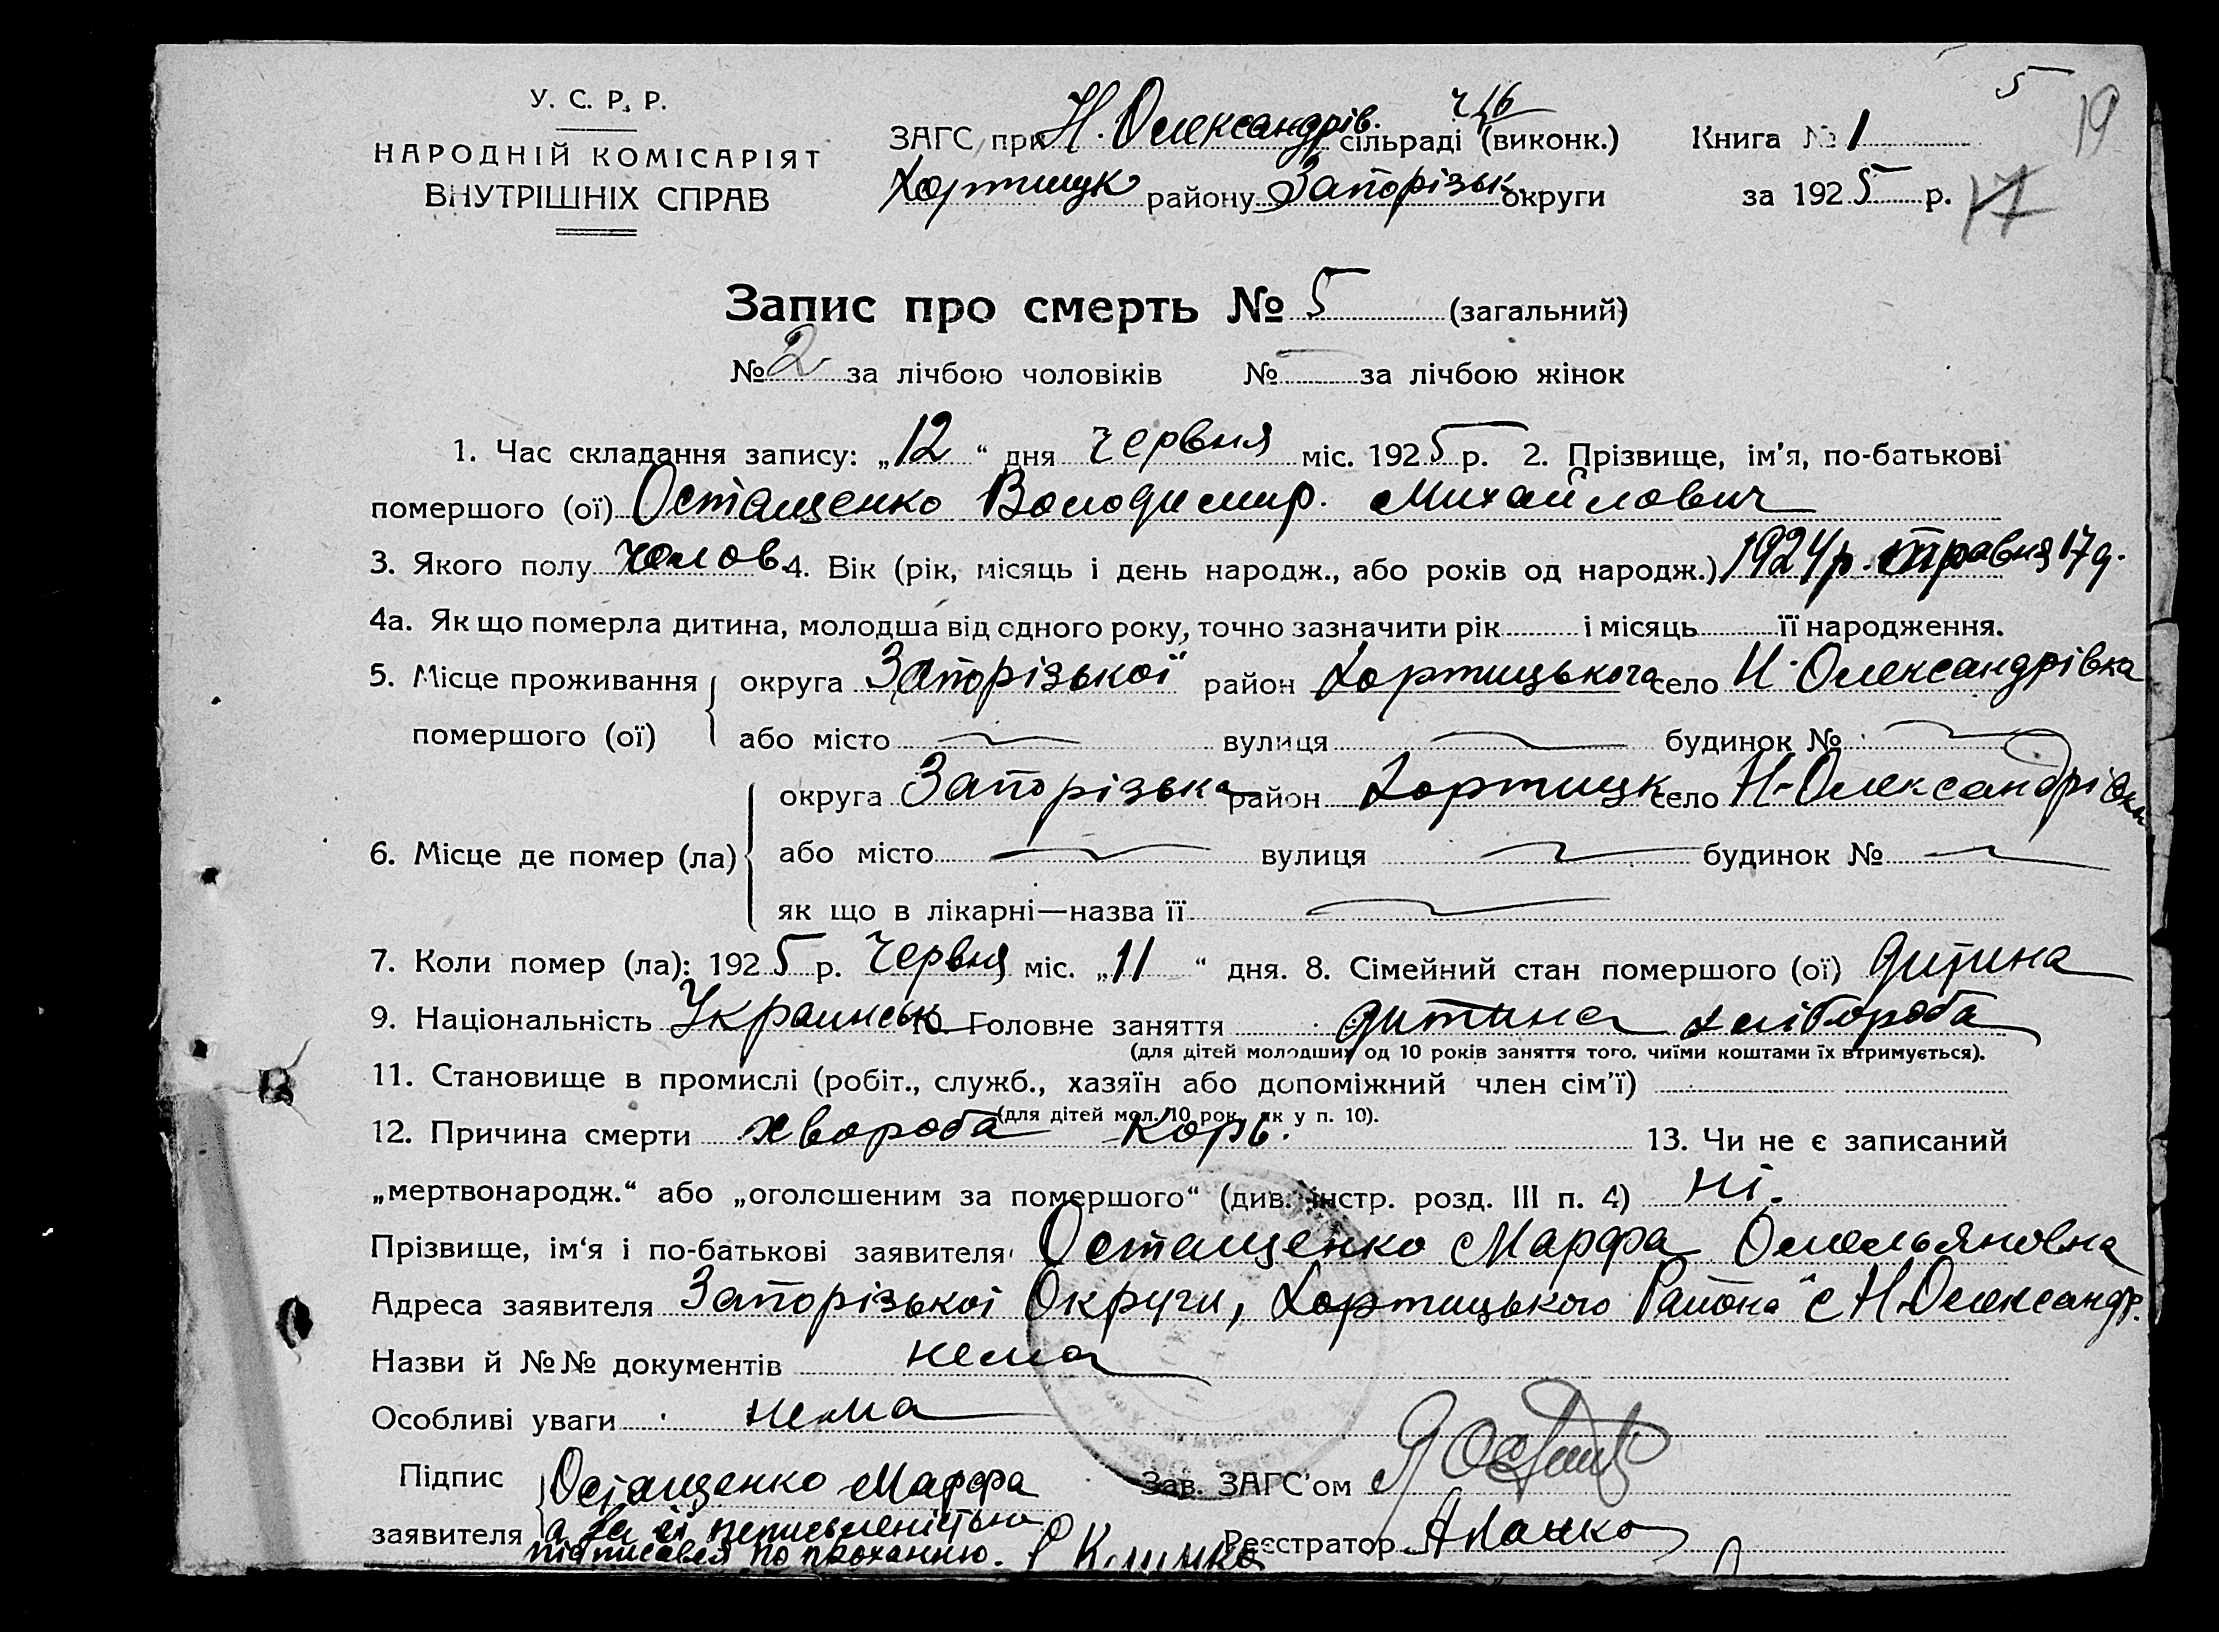 5
19
У. С. Р. Р.
НАРОДНІЙ КОМІСАРІЯТ
ВНУТРІШНІХ СПРАВ
ЗАГС при Н. Олександрів. сільраді (виконк.)
Хортицьк району Запорізьк. округи
Книга № 1
за 1925 р.
17
Запис про смерть № 5 (загальний)
№ 2 за лічбою чоловіків № — за лічбою жінок
1. Час складання запису: „12“ дня червня міс. 1925 р. 2. Прізвище, ім'я, по-батькові
помершого (ої) Остащенко Володимир. Михайлович
3. Якого полу чолов. 4. Вік (рік, місяць і день народж., або років од народж.) 1924р. травня 17д.
4а. Як що померла дитина, молодша від одного року, точно зазначити рік і місяць її народження.
5. Місце проживання округа Запорізької район Хортицького село Н-Олександрівка
помершого (ої) або місто — вулиця — будинок № —
округа Запорізька район Хортицьк село Н-Олександрівка
6. Місце де помер (ла) або місто — вулиця — будинок № —
як що в лікарні—назва її —
7. Коли помер (ла): 1925 р. Червня міс. „11“ дня. 8. Сімейний стан помершого (ої) дитина
9. Національність Украинськ 10. Головне заняття дитина хлібороба
(для дітей молодших од 10 років заняття того, чиїми коштами їх втримується).
11. Становище в промислі (робіт., служб., хазяїн або допоміжний член сім'ї)
(для дітей мол. 10 рок. як у п. 10).
12. Причина смерти хвороба Корь. 13. Чи не є записаний
„мертвонародж.“ або „оголошеним за помершого“ (див. інстр. розд. III п. 4) ні.
Прізвище, ім'я і по-батькові заявителя Остащенко Марфа Омельяновна
Адреса заявителя Запорізької Округи, Хортицького Района с Н.Олександр.
Назви й №№ документів нема
Особливі уваги нема
Підпис Остащенко Марфа
заявителя а за її неписьменістью
підписався по проханню.
Зав. ЗАГС'ом
Реєстратор